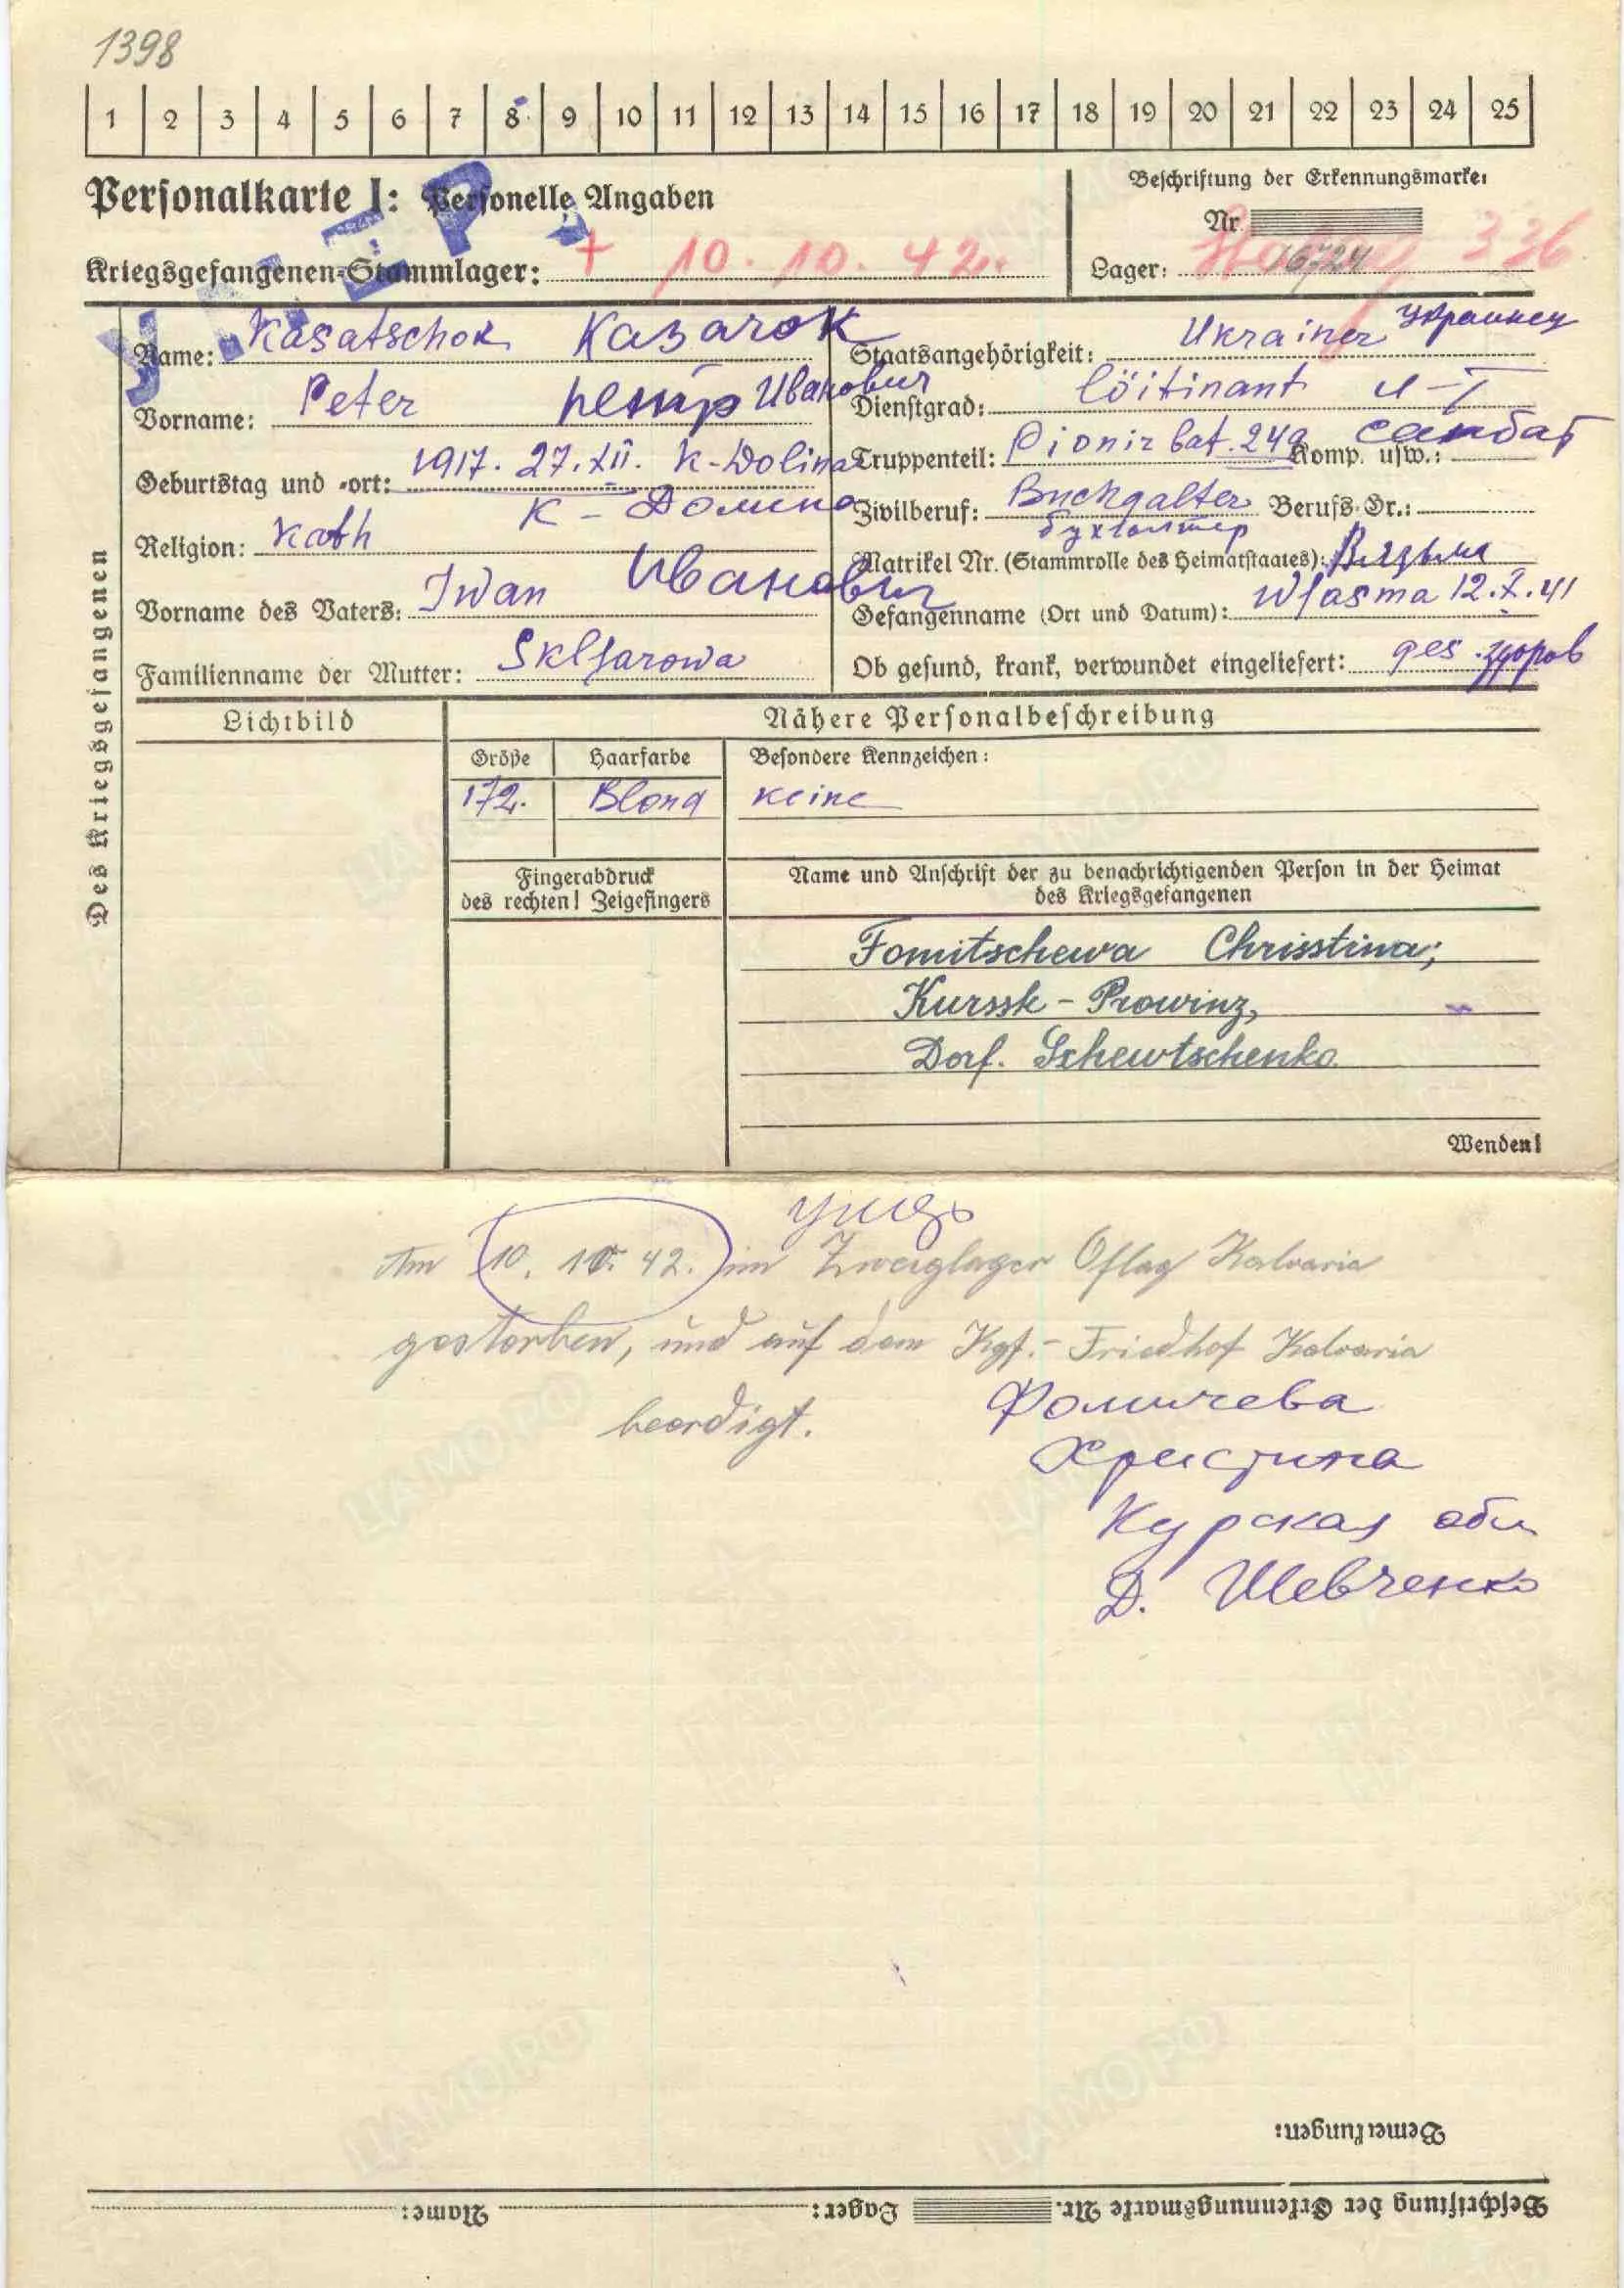 1398
1 2 3 4 5 6 7 8 9 10 11 12 13 14 15 16 17 18 19 20 21 22 23 24 25
Personalkarte I: Personelle Angaben
Beschriftung der Erkennungsmarke:
Nr.
Kriegsgefangenen-Stammlager: + 10. 10. 42.
Lager: 16724 336
УМЕР
Des Kriegsgefangenen
Name: Kasatschok Казачок
Vorname: Peter Петр Иванович
Geburtstag und -ort: 1917. 27. XII. K-Dolina
К - Долина
Religion: Kath
Vorname des Vaters: Iwan Иванович
Familienname der Mutter: Skljarowa
Staatsangehörigkeit: Ukrainer Украинец
Dienstgrad: löitinant Л-Т
Truppenteil: Pionir bat. 249 Komp. usw.: санбат
Zivilberuf: Buchgalter Berufs-Gr.:
бухгалтер
Matrikel Nr. (Stammrolle des Heimatstaates): Вязьма
Gefangenname (Ort und Datum): Wjasma 12. X. 41
Ob gesund, krank, verwundet eingeliefert: ges. здоров
Lichtbild
Nähere Personalbeschreibung
Größe Haarfarbe Besondere Kennzeichen:
172. Blond keine
Fingerabdruck
des rechten! Zeigefingers
Name und Anschrift der zu benachrichtigenden Person in der Heimat
des Kriegsgefangenen
Fomitschewa Chrisstina;
Kurssk - Prowinz,
Dorf. Schewtschenko
Wenden!
Am 10. 10. 42. im Zweiglager Oflag Kalvaria
gestorben, und auf dem Kgf.- Friedhof Kalvaria
beerdigt.
Фомичева
Христина
Курская обл
Д. Шевченко
Bemerkungen:
Beschriftung der Erkennungsmarke Nr. Lager: Name: